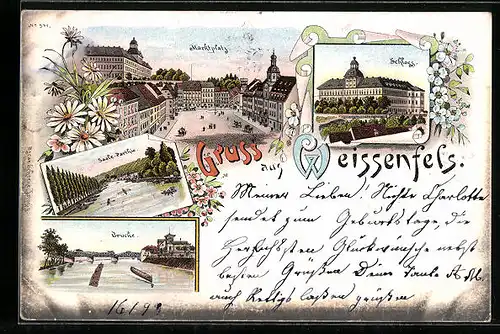 No 941.
Marktplatz
Schloss.
Gruss aus Weissenfels.
Saale-Partie
Brücke.
Meiner Lieben! Nichte Charlotte
sendet zum Geburtstage, die
herzlichsten Glückwünsche nebst
besten Grüßen Deine Tante
auch laßen grüßen
16/1 98